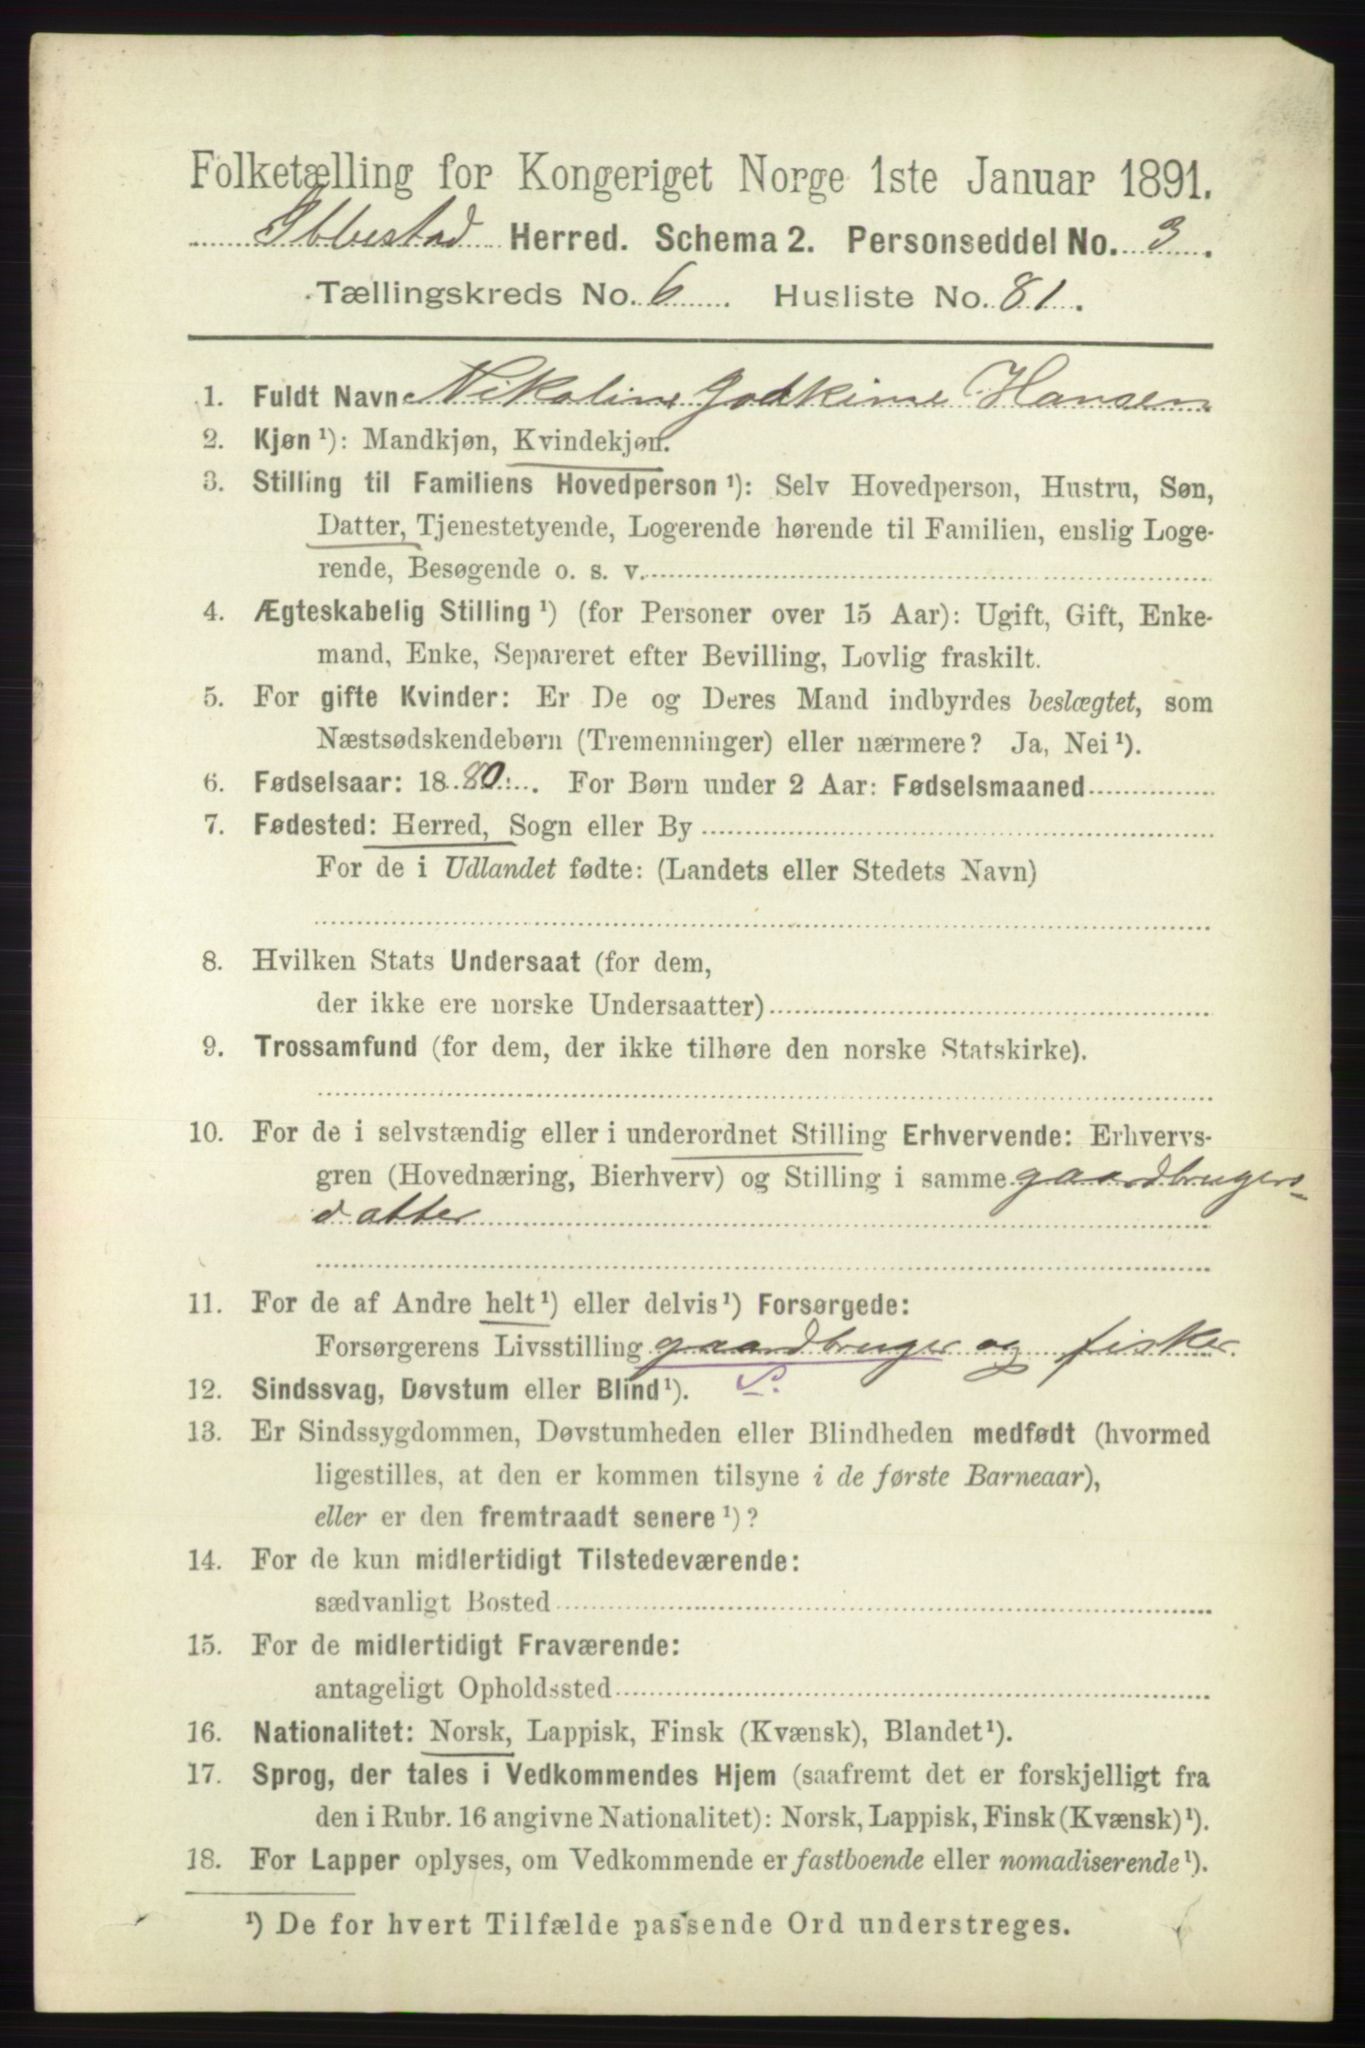 Folketælling for Kongeriget Norge 1ste Januar 1891.
Ibbestad Herred. Schema 2. Personseddel No. 3.
Tællingskreds No. 6 Husliste No. 81.
1. Fuldt Navn Nikoline Hansen
2. Kjøn ¹): Mandkjøn, Kvindekjøn.
3. Stilling til Familiens Hovedperson ¹): Selv Hovedperson, Hustru, Søn,
Datter, Tjenestetyende, Logerende hørende til Familien, enslig Loge-
rende, Besøgende o. s. v.
4. Ægteskabelig Stilling ¹) (for Personer over 15 Aar): Ugift, Gift, Enke-
mand, Enke, Separeret efter Bevilling, Lovlig fraskilt.
5. For gifte Kvinder: Er De og Deres Mand indbyrdes beslægtet, som
Næstsødskendebørn (Tremenninger) eller nærmere? Ja, Nei ¹).
6. Fødselsaar: 1880. For Børn under 2 Aar: Fødselsmaaned
7. Fødested: Herred, Sogn eller By
For de i Udlandet fødte: (Landets eller Stedets Navn)
8. Hvilken Stats Undersaat (for dem,
der ikke ere norske Undersaatter)
9. Trossamfund (for dem, der ikke tilhøre den norske Statskirke).
10. For de i selvstændig eller i underordnet Stilling Erhvervende: Erhvervs-
gren (Hovednæring, Bierhverv) og Stilling i samme gaardbrugers-
datter
11. For de af Andre helt ¹) eller delvis ¹) Forsørgede:
Forsørgerens Livsstilling gaardbruger og fisker.
12. Sindssvag, Døvstum eller Blind ¹). S.
13. Er Sindssygdommen, Døvstumheden eller Blindheden medfødt (hvormed
ligestilles, at den er kommen tilsyne i de første Barneaar),
eller er den fremtraadt senere ¹)?
14. For de kun midlertidigt Tilstedeværende:
sædvanligt Bosted
15. For de midlertidigt Fraværende:
antageligt Opholdssted
16. Nationalitet: Norsk, Lappisk, Finsk (Kvænsk), Blandet ¹).
17. Sprog, der tales i Vedkommendes Hjem (saafremt det er forskjelligt fra
den i Rubr. 16 angivne Nationalitet): Norsk, Lappisk, Finsk (Kvænsk) ¹).
18. For Lapper oplyses, om Vedkommende er fastboende eller nomadiserende ¹).
¹) De for hvert Tilfælde passende Ord understreges.